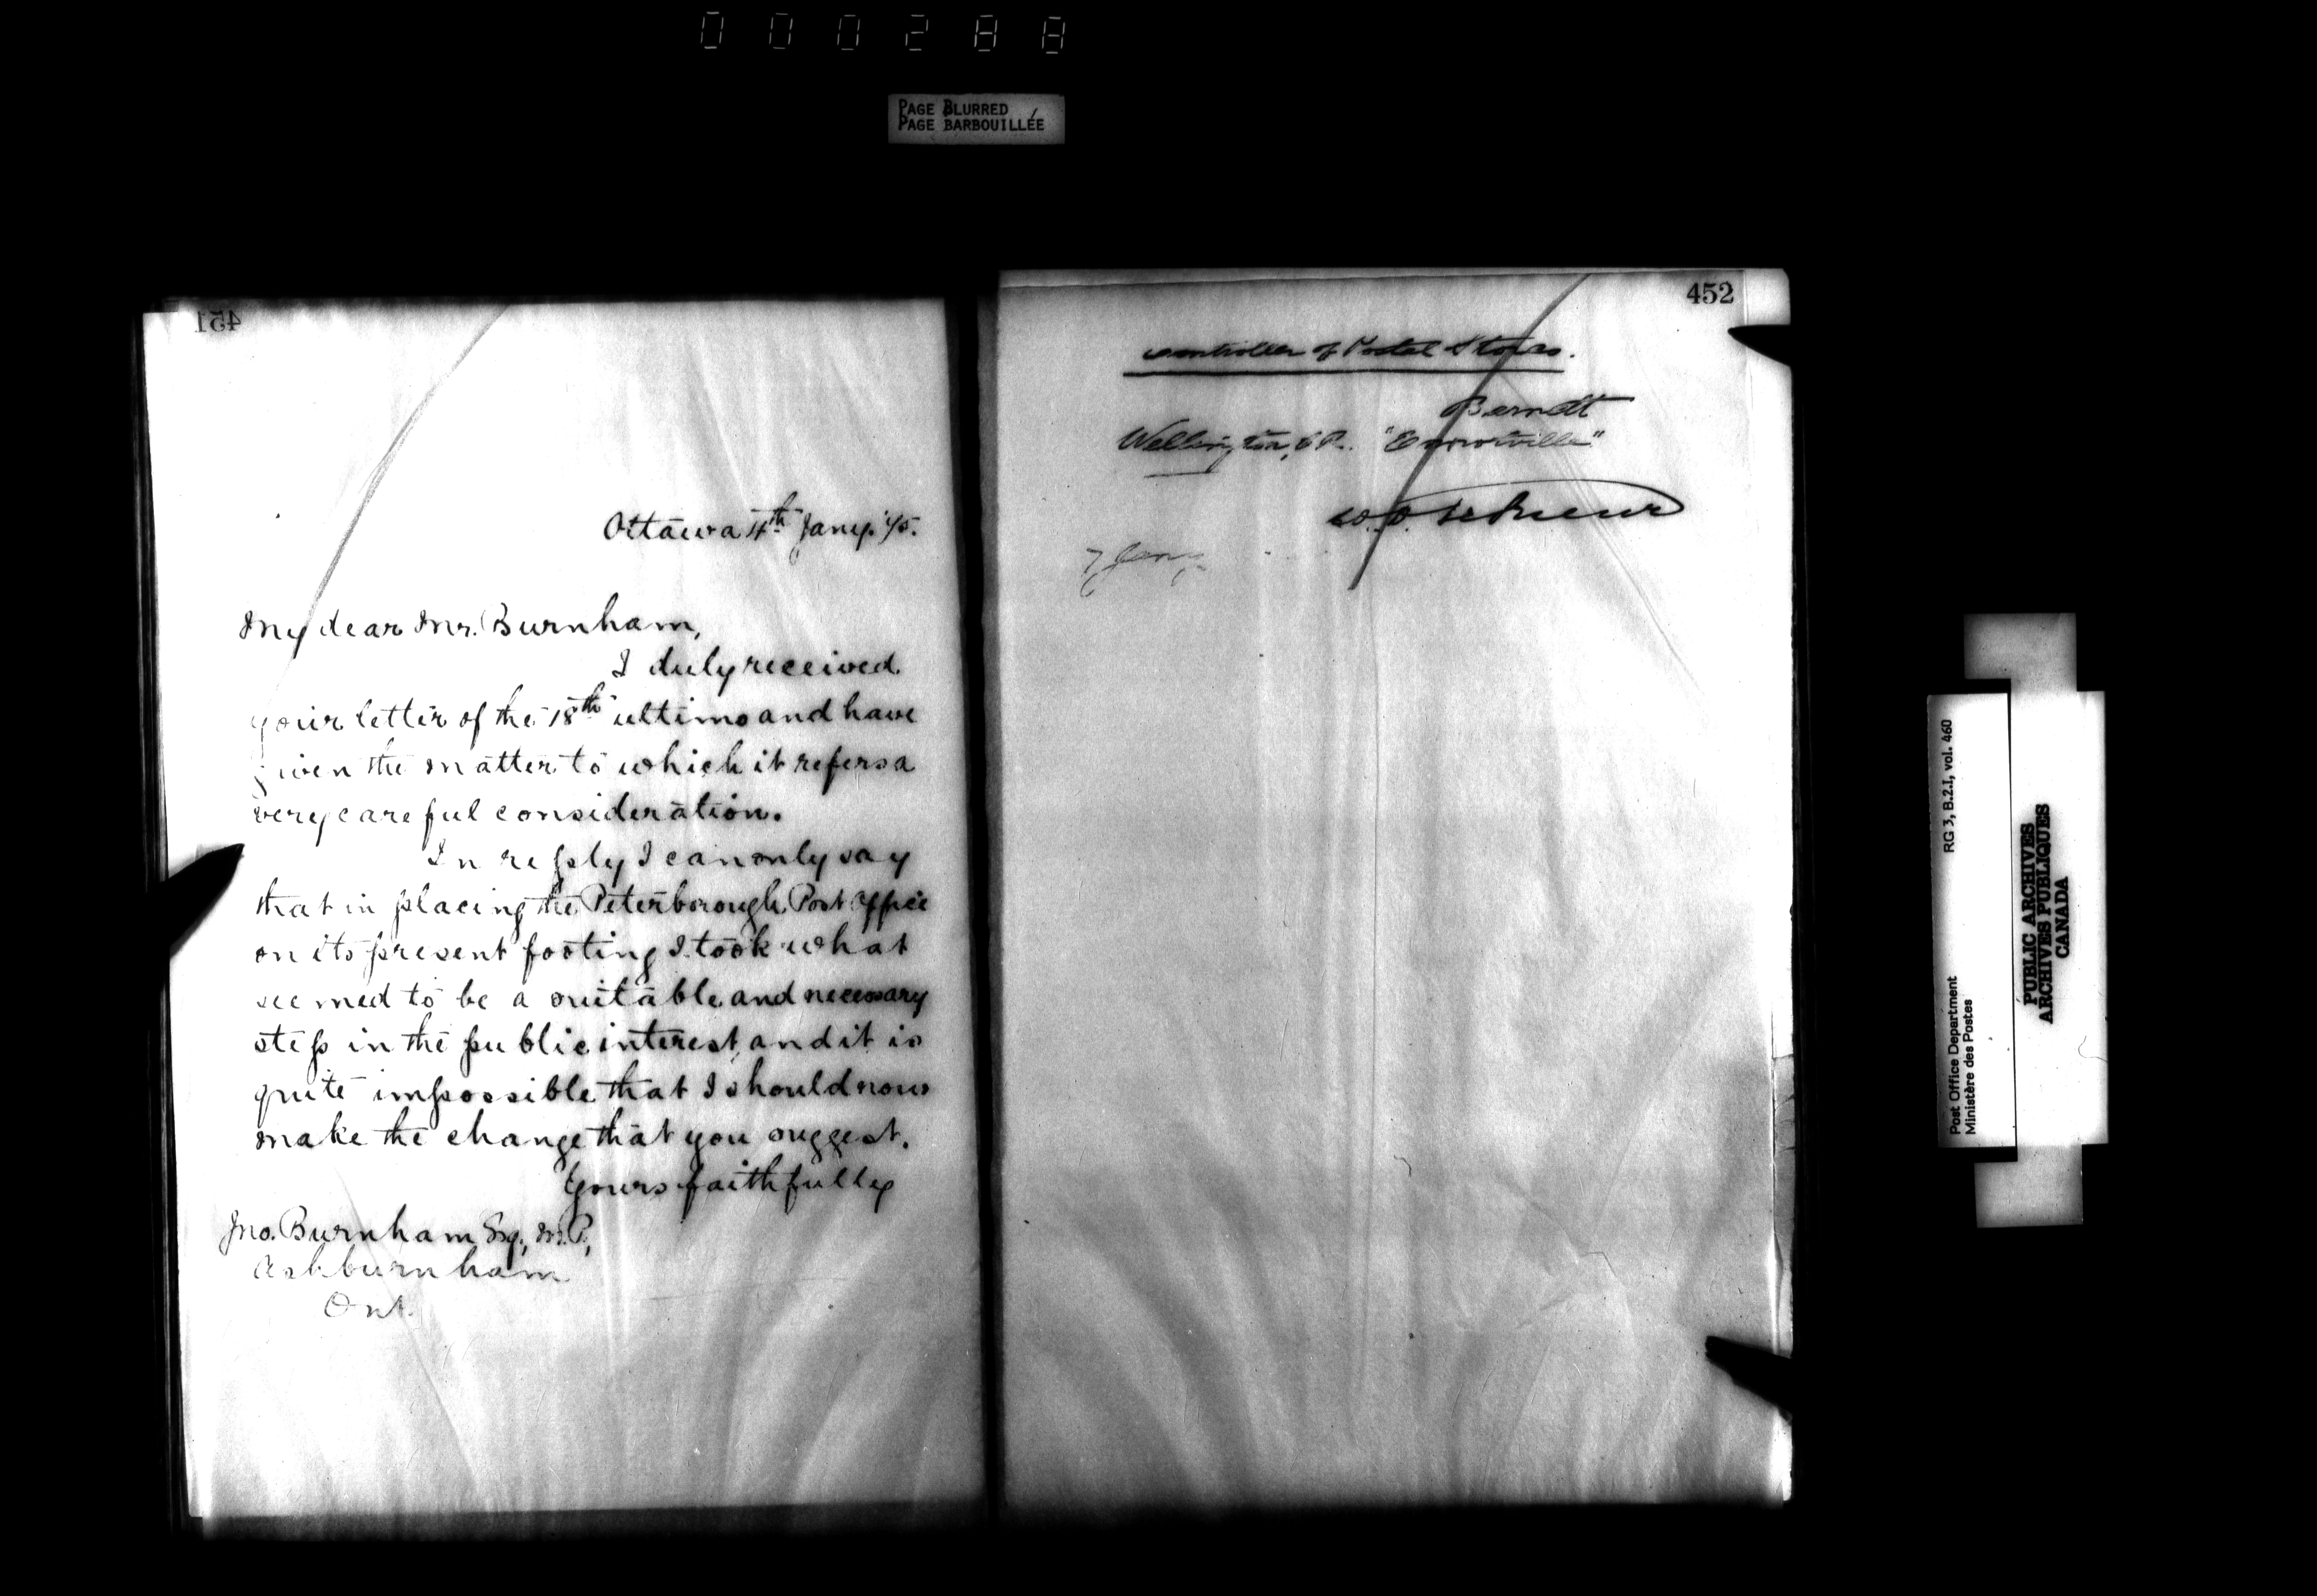 000288
PAGE BLURRED
PAGE BARBOUILLÉE
451
Ottawa 4th Jany.
My dear Mr. Burnham,
I duly received
your letter of the 18th ultimo and have
given the matter to which it refers a
very careful consideration.
In reply I can only say
that in placing the Peterborough Post Office
on its present footing I took what
seemed to be a suitable and necessary
step in the public interest and it is
quite impossible that I should now
make the change that you suggest.
Yours faithfully
Jno. Burnham Esq., M.P.,
Ashburnham
Ont.
452
Controller of Postal Stores.
Berndt
Wellington,
7 Jany
RG 3, B.2.I, vol. 460
Post Office Department
Ministère des Postes
PUBLIC ARCHIVES
ARCHIVES PUBLIQUES
CANADA